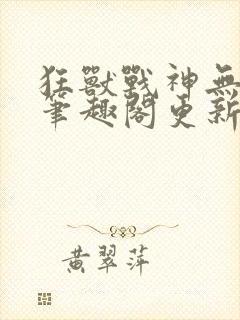 狂獸戰神無
筆趣閣更新
黃翠萍